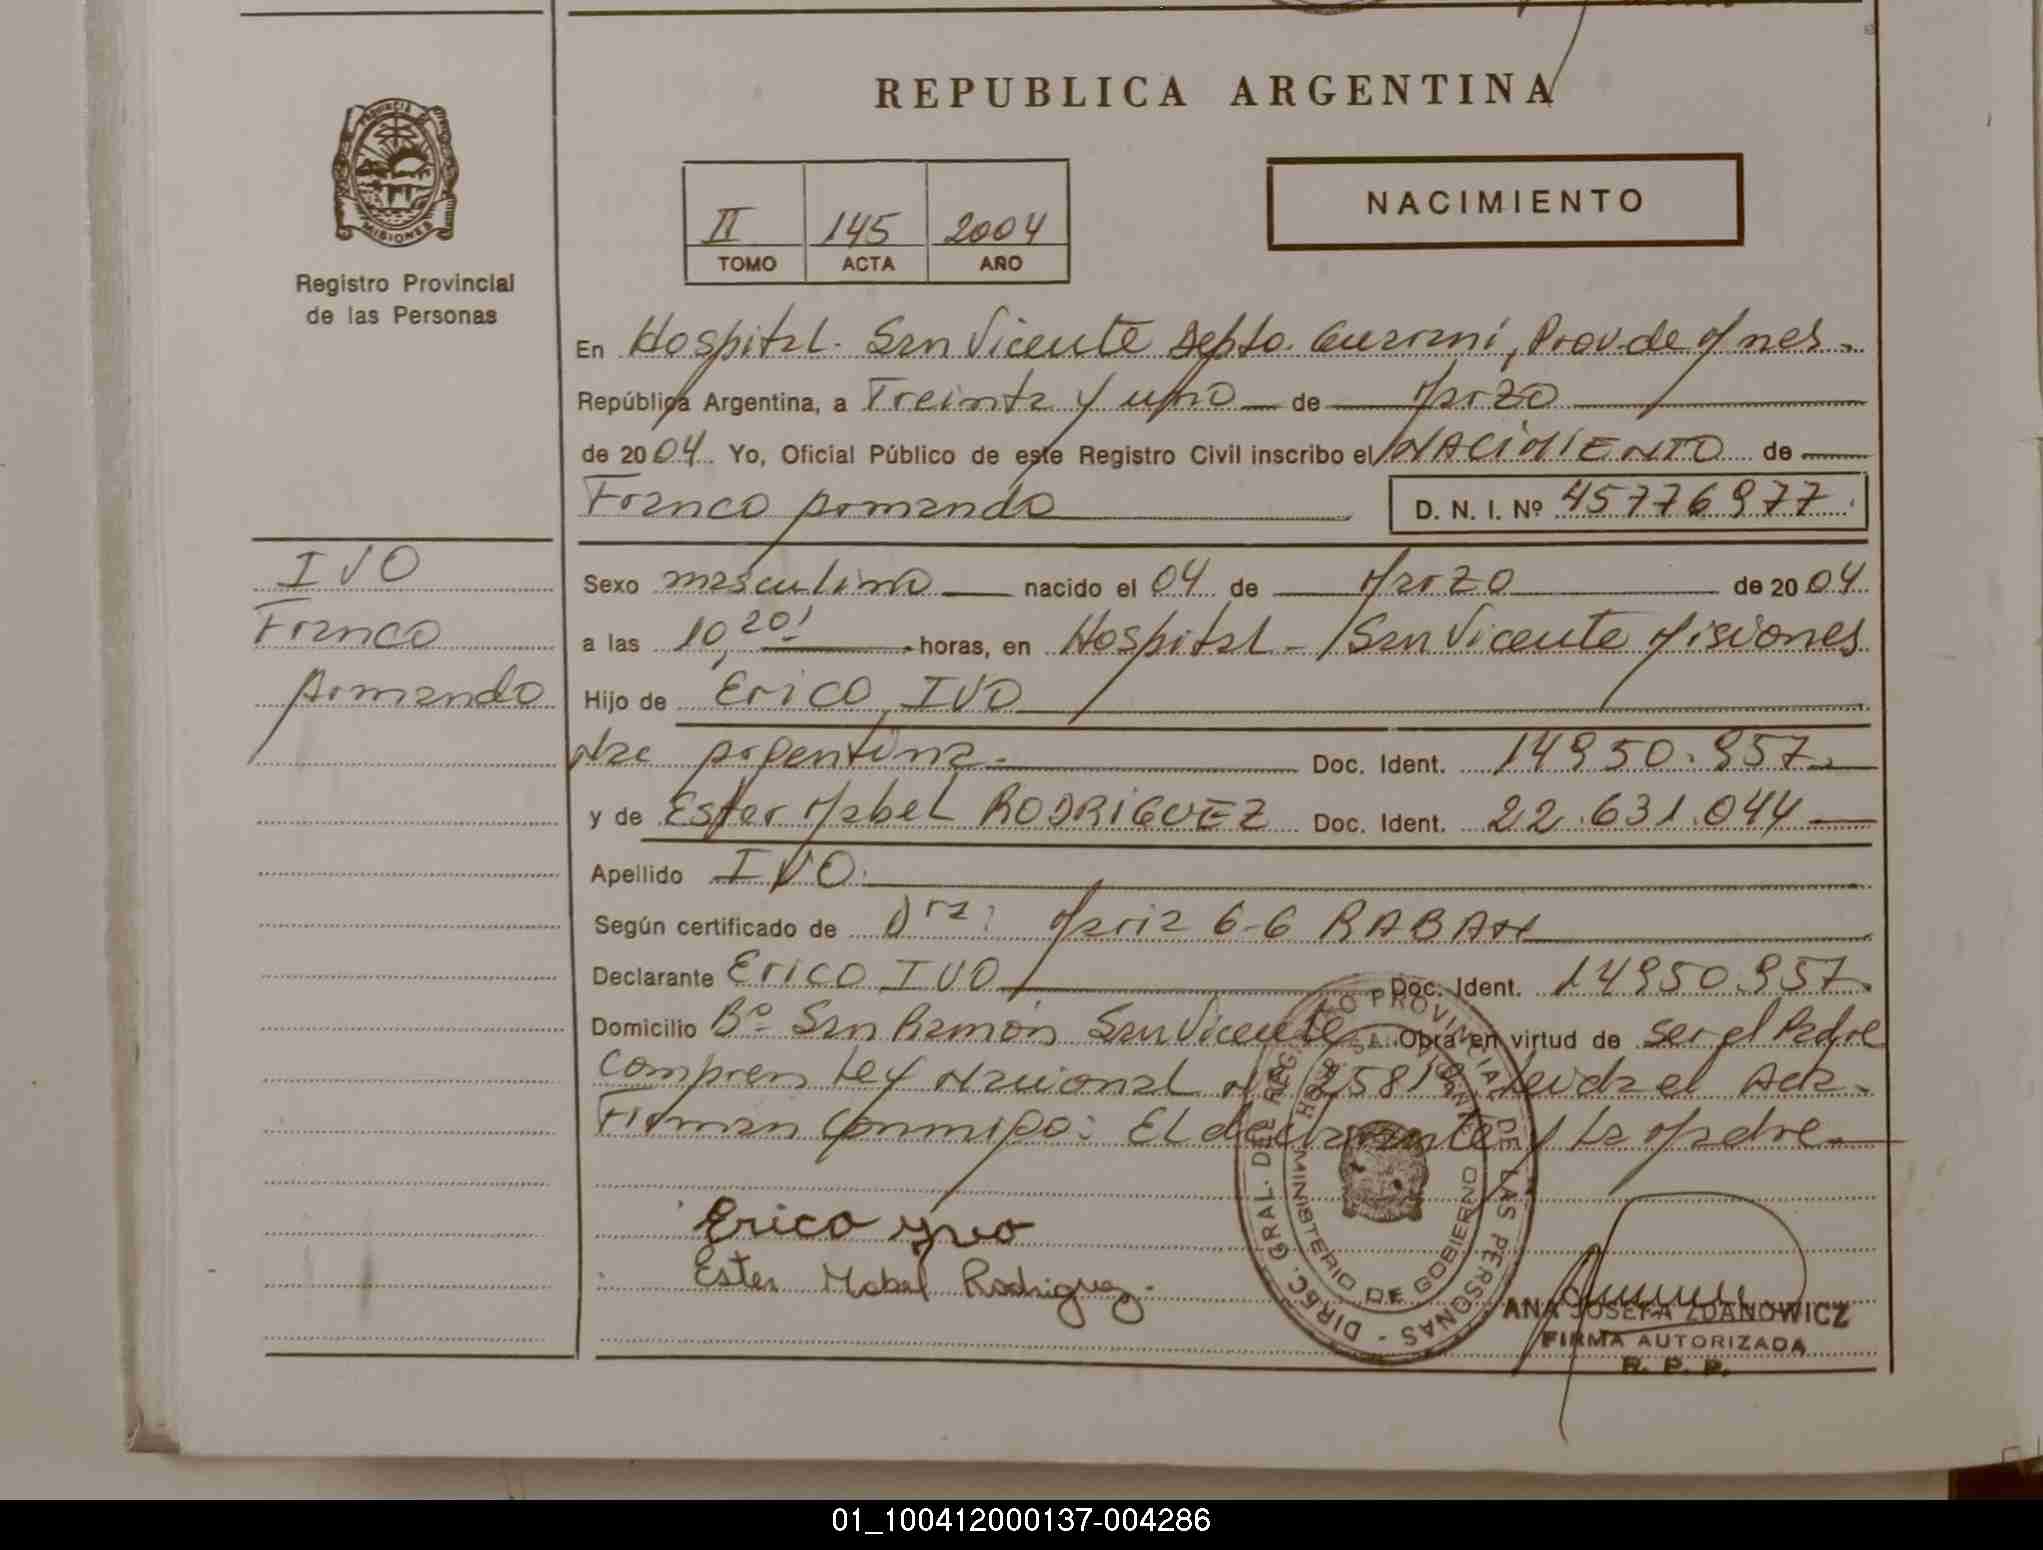 REPUBLICA ARGENTINA
PROVINCIA DE MISIONES
Registro Provincial
de las Personas
II 145 2004
TOMO ACTA AÑO
NACIMIENTO
En Hospital. San Vicente Depto. Guaraní, Prov. de Mnes.
República Argentina, a Treinta y uno de Marzo
de 2004 Yo, Oficial Público de este Registro Civil inscribo el NACIMIENTO de
Franco Armando D. N. I. Nº 45776977
IVO
Franco
Armando
Sexo masculino nacido el 04 de Marzo de 2004
a las 10,20' horas, en Hospital - San Vicente Misiones
Hijo de Erico IVO
Nac Argentina. Doc. Ident. 14950.957
y de Ester Mabel RODRIGUEZ Doc. Ident. 22.631.044
Apellido IVO
Según certificado de Dra: Maria G-G RABAH
Declarante Erico IVO Doc. Ident. 14950.957
Domicilio Bº San Ramón San Vicente Obra en virtud de ser el Padre
Ley Nacional Nº 25819 Leida el Acta.
Firman conmigo: El declarante y La Madre.
Erico Yvo
Ester Mabel Rodriguez.
DIREC. GRAL. DEL REGISTRO PROVINCIAL DE LAS PERSONAS -
MINISTERIO DE GOBIERNO
ANA JOSEFA ZDANOWICZ
FIRMA AUTORIZADA
R. P. P.
01_100412000137-004286